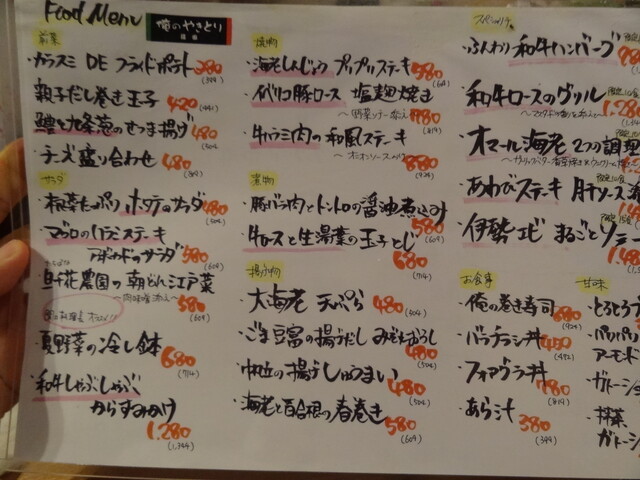 Food Menu
俺のやきとり
前菜
・カラスミ DE フライドポテト 380
(399)
・親子だし巻き玉子 420
(441)
・鱧と九条葱のさつま揚げ 480
(504)
・チーズ盛り合わせ 480
サラダ
・根菜たっぷり ホタテのサラダ 480
(504)
・マグロのハラミステーキ
アボカドのサラダ 580
(609)
農園の 朝どれ江戸菜
580
(609)
・夏野菜の冷し鉢 680
(714)
・和牛しゃぶしゃぶ
からすみかけ
1.280
(1,344)
焼物
・海老しんじょう プップリステーキ 580
・イベリコ豚ロース 塩麹焼き
・牛ハラミ肉の和風ステーキ
〜オニオンソースのり〜 880
(924)
煮物
・豚バラ肉とトントロの醤油煮込み
580
(609)
・牛ロースと生湯葉の玉子とじ
680
(714)
揚げ物
・大海老 天ぷら 480
(504)
・ごま豆富の揚げだし みぞれおろし
480
(504)
・帆立の揚げしゅうまい 480
(504)
・海老と百合根の春巻き
580
(609)
スペシャリテ
・ふんわり和牛ハンバーグ
・和牛ロースのグリル
・オマール海老 2つの調理
・あわびステーキ 肝ソース
・伊勢エビ まるごと
1.480
お食事
・俺の巻き寿司 680
・バラチラシ丼 450
(472)
・フォアグラ丼 780
(819)
・あら汁 380
(399)
甘味
・とろとろプ
・パリパリ
アーモンド
・ガトーショ
・抹茶
ガトー